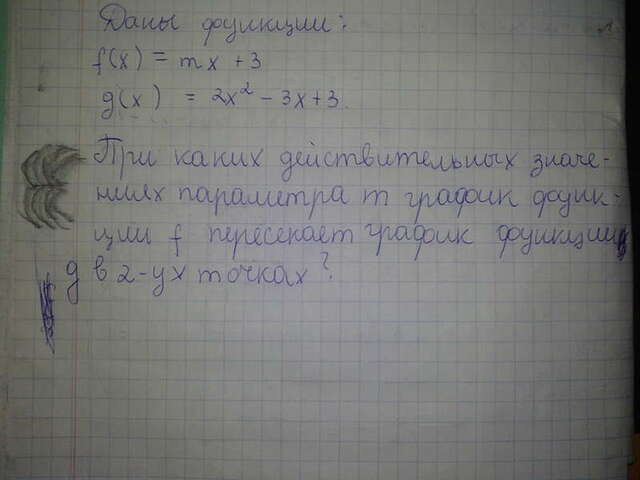 Даны функции:
f(x) = mx + 3
g(x) = 2x² - 3x + 3.
При каких действительных значе-
ниях параметра m график функ-
ции f пересекает график функции
g в 2-ух точках?